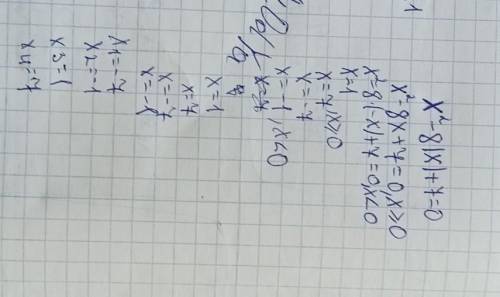 x²-8|x|+7=0
x²-8x+7=0, x≥0
x²-8·(-x)+7=0, x<0
x=1
x=7, x≥0
x=-7
x=-1, x<0
x=1
x=7
x=-7
x=-1
x₁=-7
x₂=-1
x₃=1
x₄=7